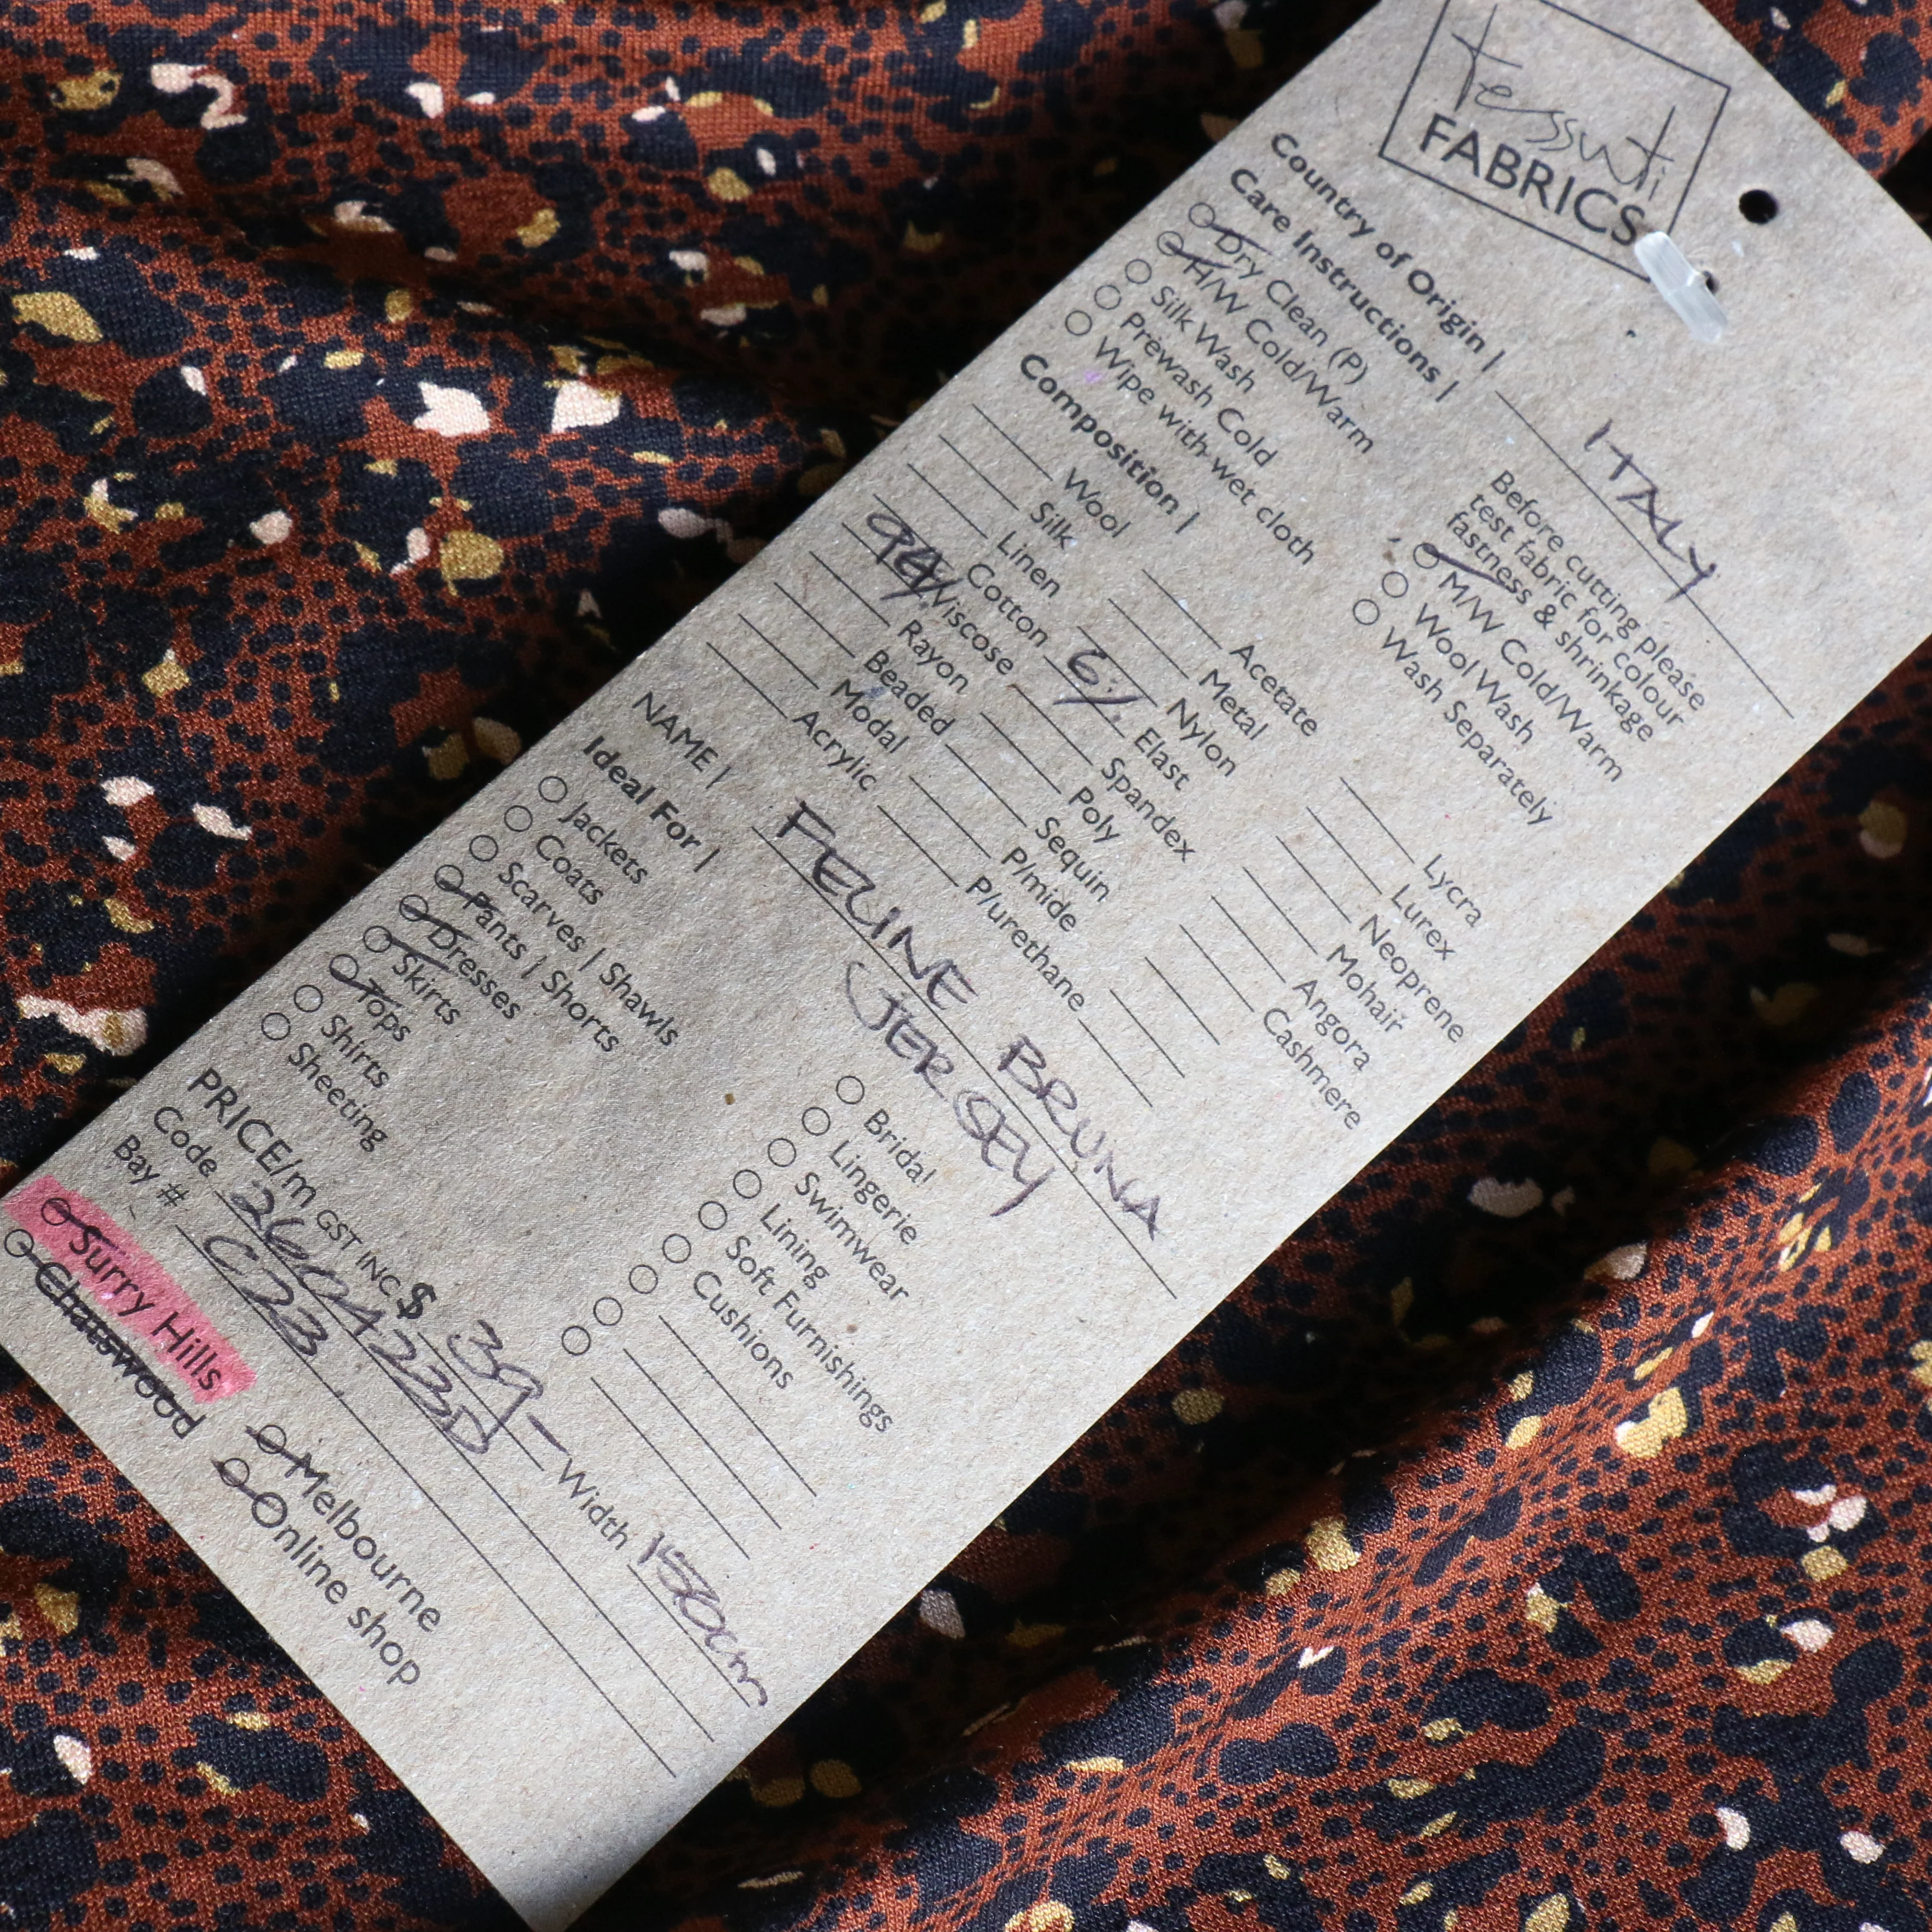 tessuti
FABRICS
Country of Origin | ITALY
Care Instructions |
Dry Clean (P)
H/W Cold/Warm
Silk Wash
Prewash Cold
Wipe with wet cloth
Before cutting please
test fabric for colour
fastness & shrinkage
M/W Cold/Warm
Wool Wash
Wash Separately
Composition |
Wool
Silk
Linen
Cotton
94% Viscose
Rayon
Beaded
Modal
Acrylic
Acetate
Metal
Nylon
6% Elast
Spandex
Poly
Sequin
P/mide
P/urethane
Lycra
Lurex
Neoprene
Mohair
Angora
Cashmere
NAME | FELINE BRUNA
JERSEY
Ideal For |
Jackets
Coats
Scarves | Shawls
Pants | Shorts
Dresses
Skirts
Tops
Shirts
Sheeting
Bridal
Lingerie
Swimwear
Lining
Soft Furnishings
Cushions
PRICE/m GST INC $ 39- Width 150cm
Code 260423D
Bay # C23
Surry Hills
Chatswood
Melbourne
Online shop